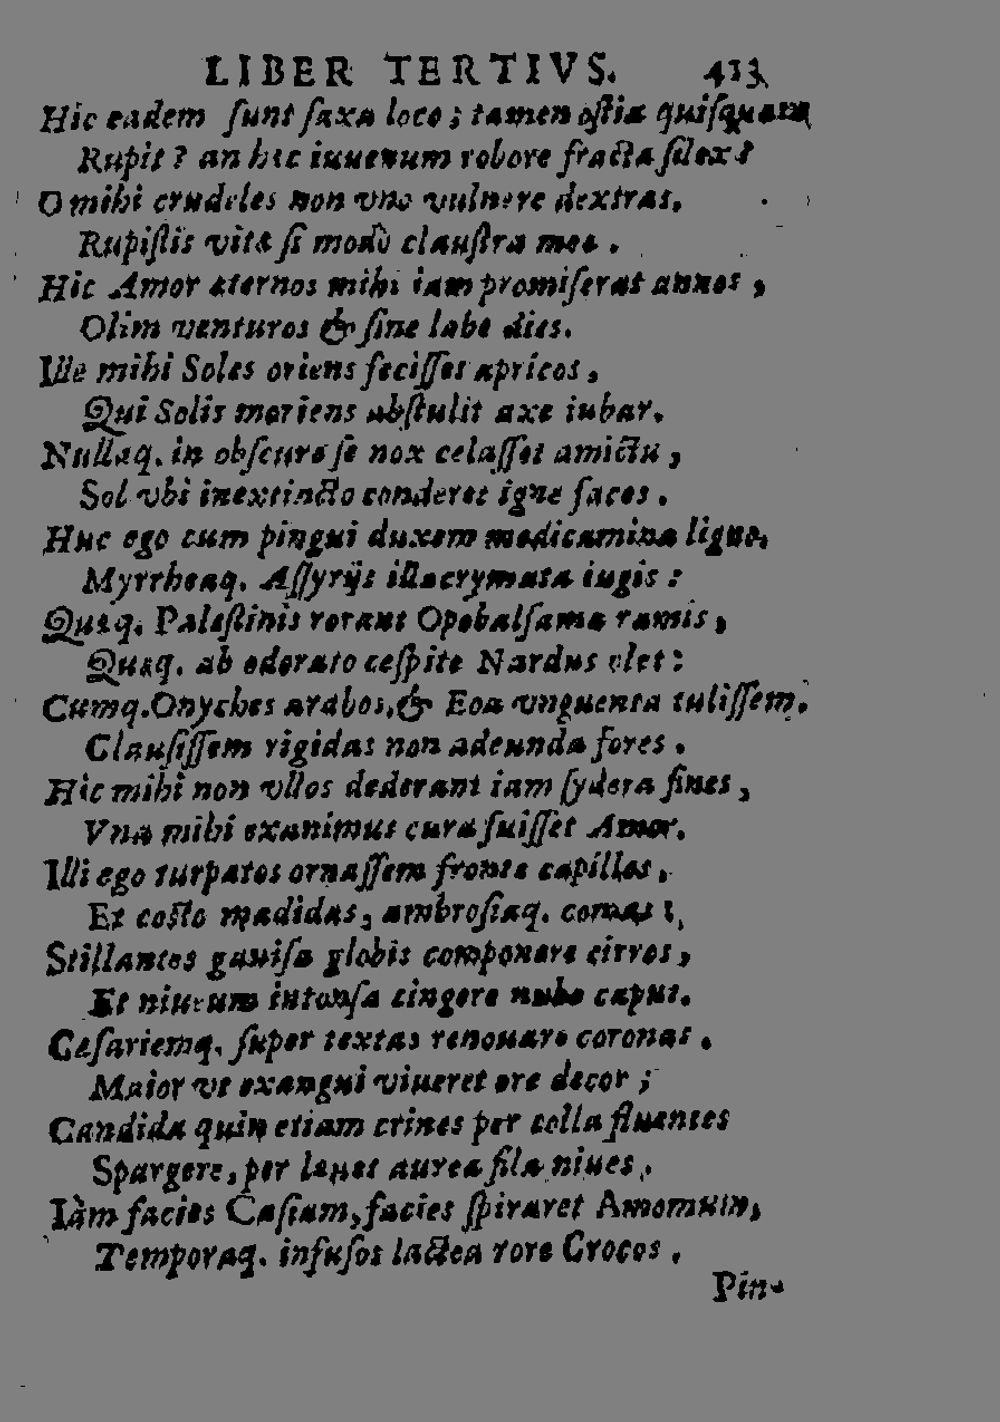 LIBER TERTIVS. 433
Hic eadem ſunt ſaxa loco; tamen oſtia quiſquam
Rupit? an hæc iuuenum robore fracta ſilex?
O mihi crudeles non vno vulnere dextras,
Rupiſtis vitæ ſi modò clauſtra meæ.
Hic Amor æternos mihi iam promiſerat annos,
Olim venturos & ſine labe dies.
Ille mihi Soles oriens feciſſet apricos,
Qui Solis moriens abſtulit axe iubar.
Nullaq. in obſcuro ſe nox celaſſet amictu,
Sol vbi inextincto conderet igne faces.
Huc ego cum pingui duxem medicamina ligno,
Myrrheaq. Aſſyrijs illacrymata iugis:
Quæq. Paleſtinis rorant Opobalſama ramis,
Quæq. ab odorato ceſpite Nardus olet:
Cumq. Onyches arabos, & Eoa vnguenta tuliſſem,
Clauſiſſem rigidas non adeunda fores.
Hic mihi non vllos dederant iam ſydera fines,
Vna mihi exanimus cura fuiſſet Amor.
Illi ego turpatos ornaſſem fronte capillos,
Et coſto madidas, ambroſiaq. comas;
Stillantes gauiſa globis componere cirros,
Et niueum intonſa cingere nube caput.
Ceſariemq. ſuper textas renouare coronas.
Maior vt exangui viueret ore decor;
Candida quin etiam crines per colla fluentes
Spargere, per leues aurea fila niues,
Iàm facies Caſiam, facies ſpiraret Amomum,
Temporaq. infuſos lactea rore Crocos.
Pin-